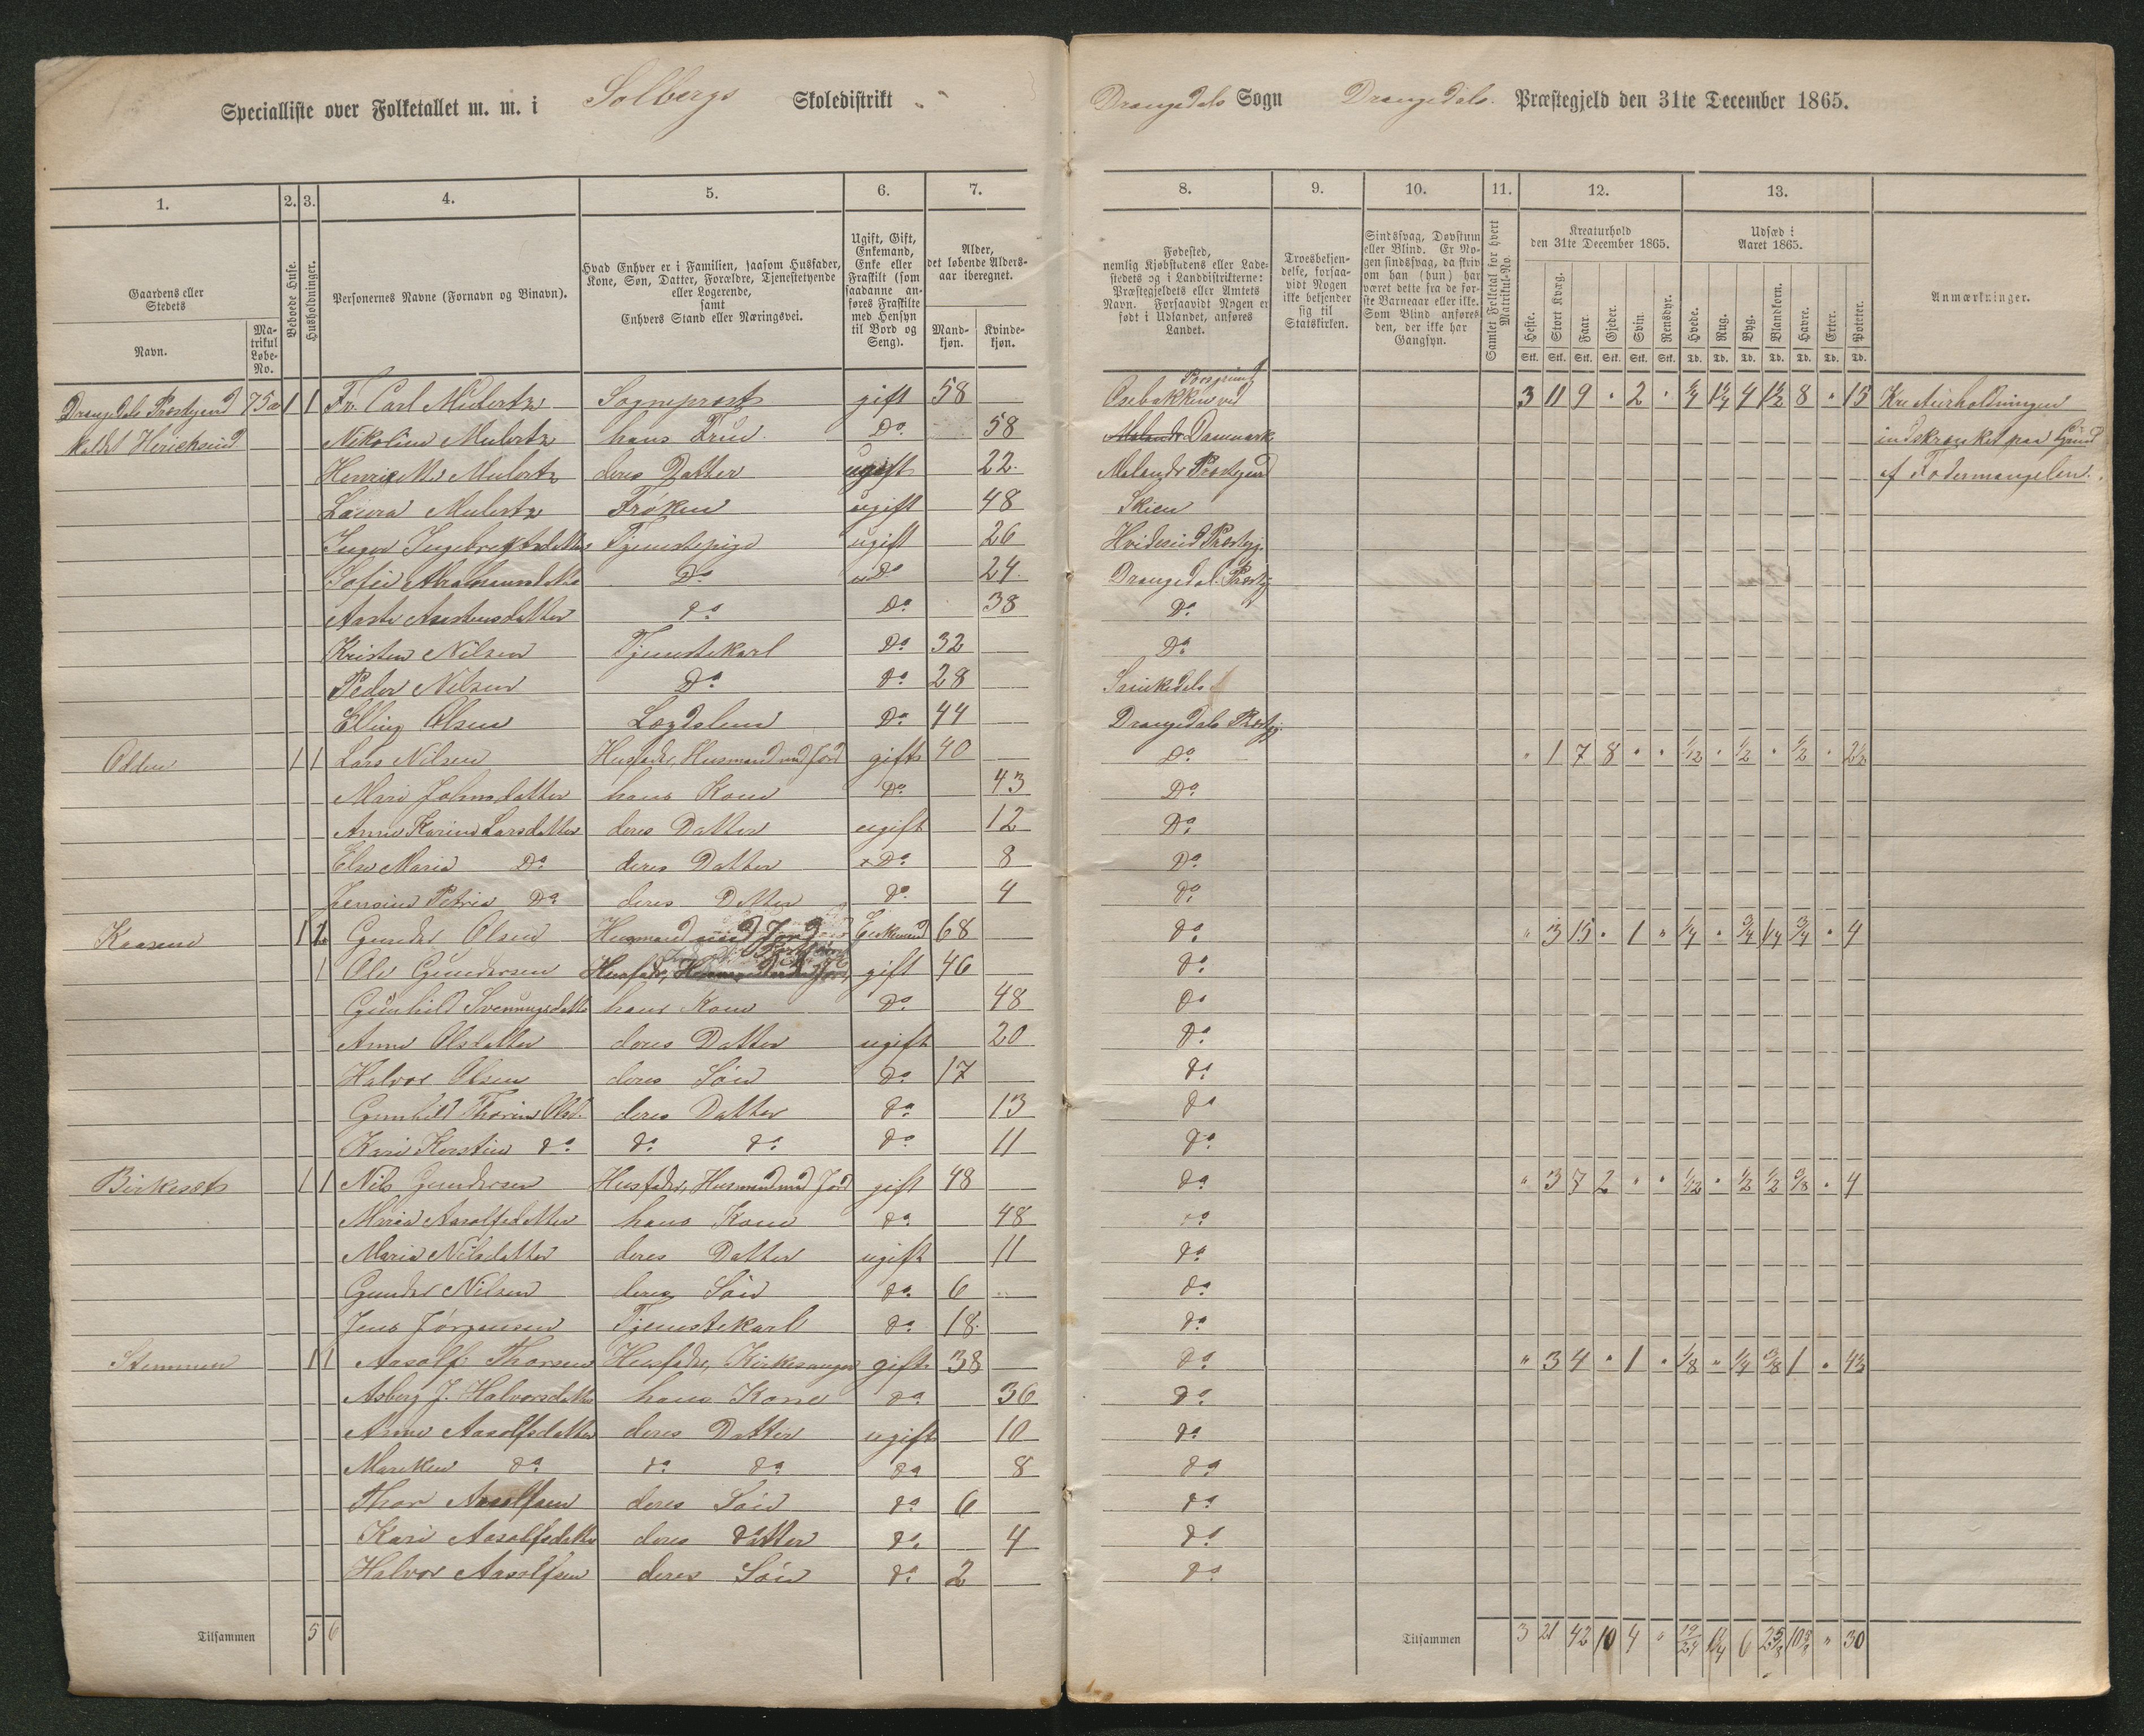 Specialliste over Folketallet m. m. i Solbergs Skoledistrikt
Drangedals Sogn Drangedals Præstegjeld den 31te December 1865.
1. 2. 3. 4. 5. 6. 7. 8. 9. 10. 11. 12. 13.
Gaardens eller Stedets
Navn.
Matrikul Løbe-No.
Beboede Huse.
Husholdninger.
Personernes Navne (Fornavn og Binavn).
Hvad Enhver er i Familien, saasom Husfader, Kone, Søn, Datter, Forældre, Tjenestetyende eller Logerende, samt Enhvers Stand eller Næringsvei.
Ugift, Gift, Enkemand, Enke eller Fraskilt (som saadanne anføres Fraskilte med Hensyn til Bord og Seng).
Alder, det løbende Aldersaar iberegnet.
Mandkjøn. Kvindekjøn.
Fødested, nemlig Kjøbstadens eller Ladestedets og i Landdistrikterne: Præstegjeldets eller Amtets Navn. Forsaavidt Nogen er født i Udlandet, anføres Landet.
Troesbekjendelse, forsaavidt Nogen ikke bekjender sig til Statskirken.
Sindssvag, Døvstum eller Blind. Er Nogen sindssvag, da skriv om han (hun) har været dette fra de første Barneaar eller ikke. Som Blind anføres den, der ikke har Gangsyn.
Samlet Folketal for hvert Matrikul-No.
Kreaturhold den 31te December 1865.
Heste. Stort Kvæg. Faar. Gjeder. Svin. Rensdyr.
Udsæd i Aaret 1865.
Hvede. Rug. Byg. Blandkorn. Havre. Erter. Poteter.
Stk. Stk. Stk. Stk. Stk. Stk. Td. Td. Td. Td. Td. Td. Td.
Anmærkninger.
Drangedals Præstegaard 75a 1 1 Fr. Carl Mülertz Sogneprest gift 58 Osebakken ved Porsgrund 3 11 9 " 2 " 1/4 1 1/4 4 1 1/2 8 " 15 Kreaturholdningen
kaldt Herichsund Nikoline Mulertz hans Frue Do 58 Danmark indskrænket paa Grund
Henrica Mulertz deres Datter ugift 22 Molands Præstegjeld af Fodermangelen.
Laura Mulertz Frøken ugift 48 Skien
Inger Ingebretsdatter Tjenestepige ugift 26 Hvideseid Præstegj.
Sofie Abrahamsdatter Do Do 24 Drangedal Præstgj
Aaste Aanstensdatter do Do 38 Do
Kristen Nilsen Tjenestekarl Do 32 Do
Peder Nilsen Do do 28 Sauekedals
Elling Olsen Lægdslem Do 44 Drangedals Præstgj.
Odden 1 1 Lars Nilsen Husfader, Husmand med Jord gift 40 Do " 1 7 8 " " 1/12 " 1/2 " 1/2 " 2 1/2
Mari Johnsdatter hans Kone Do 43 Do
Anne Karine Larsdatter deres Datter ugift 12 Do
Else Maria Do deres Datter Do 8 Do
Jensine Petrea Do deres Datter do 4 do
Kaasene 1 1 Gunder Olsen Husmand med Jord Enkemand 68 do " 3 15 " 1 " 1/4 " 3/4 1/4 3/4 " 4
1 Ole Gundersen Husfader, gift 46 do
Gunhild Svenungsdatter hans Kone Do 48 do
Anne Olsdatter deres Datter ugift 20 do
Halvor Olsen deres Søn do 17 do
Gunhild Thorine Olsd. deres Datter do 13 do
Kari Kerstine do do do do 11 do
Birkesæt 1 1 Nils Gundersen Husfader, Husmand med Jord gift 48 do " 3 7 2 " " 1/12 " 1/2 1/2 3/8 " 4
Maria Aasolfsdatter hans Kone do 48 do
Maria Nilsdatter deres Datter ugift 11 do
Gunder Nilsen deres Søn do 6 do
Jens Jørgensen Tjenestekarl do 18 do
Stemmen 1 1 Aasolf Thorsen Husfader, Kirkesanger gift 38 do " 3 4 " 1 " 1/8 " 1/4 3/8 1 " 4 1/2
Asberg J. Halvorsdatter hans Kone do 36 do
Anne Aasolfsdatter deres Datter ugift 10 do
Mareken do do do do 8 do
Thor Aasolfsen deres Søn do 6 do
Kari Aasolfsdatter deres datter do 4 do
Halvor Aasolfsen deres Søn do 2 do
Tilsammen 5 6 Tilsammen 3 21 42 10 4 " 19/24 1 1/4 6 2 5/8 10 5/8 " 30